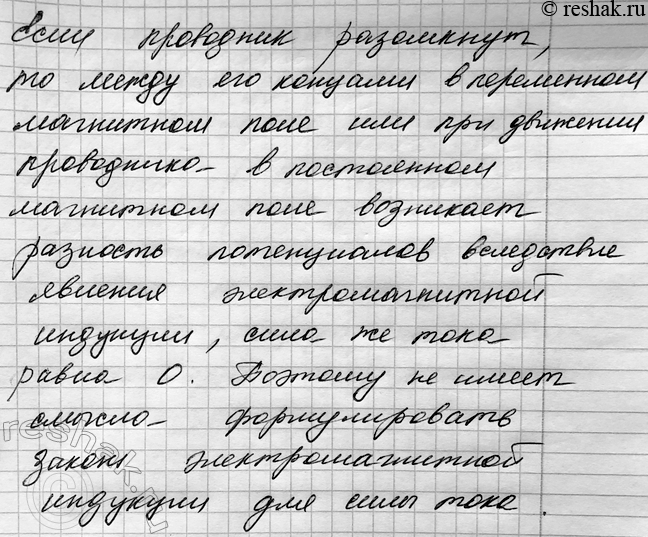 © reshak.ru
Если проводник разомкнут,
то между его концами в переменном
магнитном поле или при движении
проводника в постоянном
магнитном поле возникает
разность потенциалов вследствие
явления электромагнитной
индукции, сила же тока
равна 0. Поэтому не имеет
смысла формулировать
закон электромагнитной
индукции для силы тока.
reshak.ru